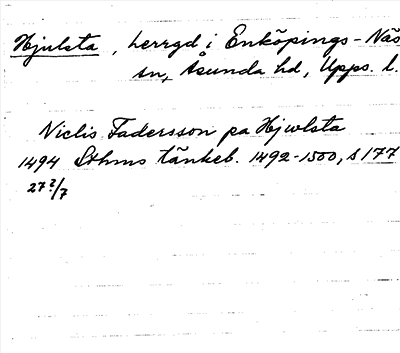 Hjulsta, herrgd i Enköpings-Näs
sn, Åsunda hd, Upps. l.
Niclis Fadersson pa Hjwlsta
1494 Sthms tänkeb. 1492-1500, s 177
27?/7